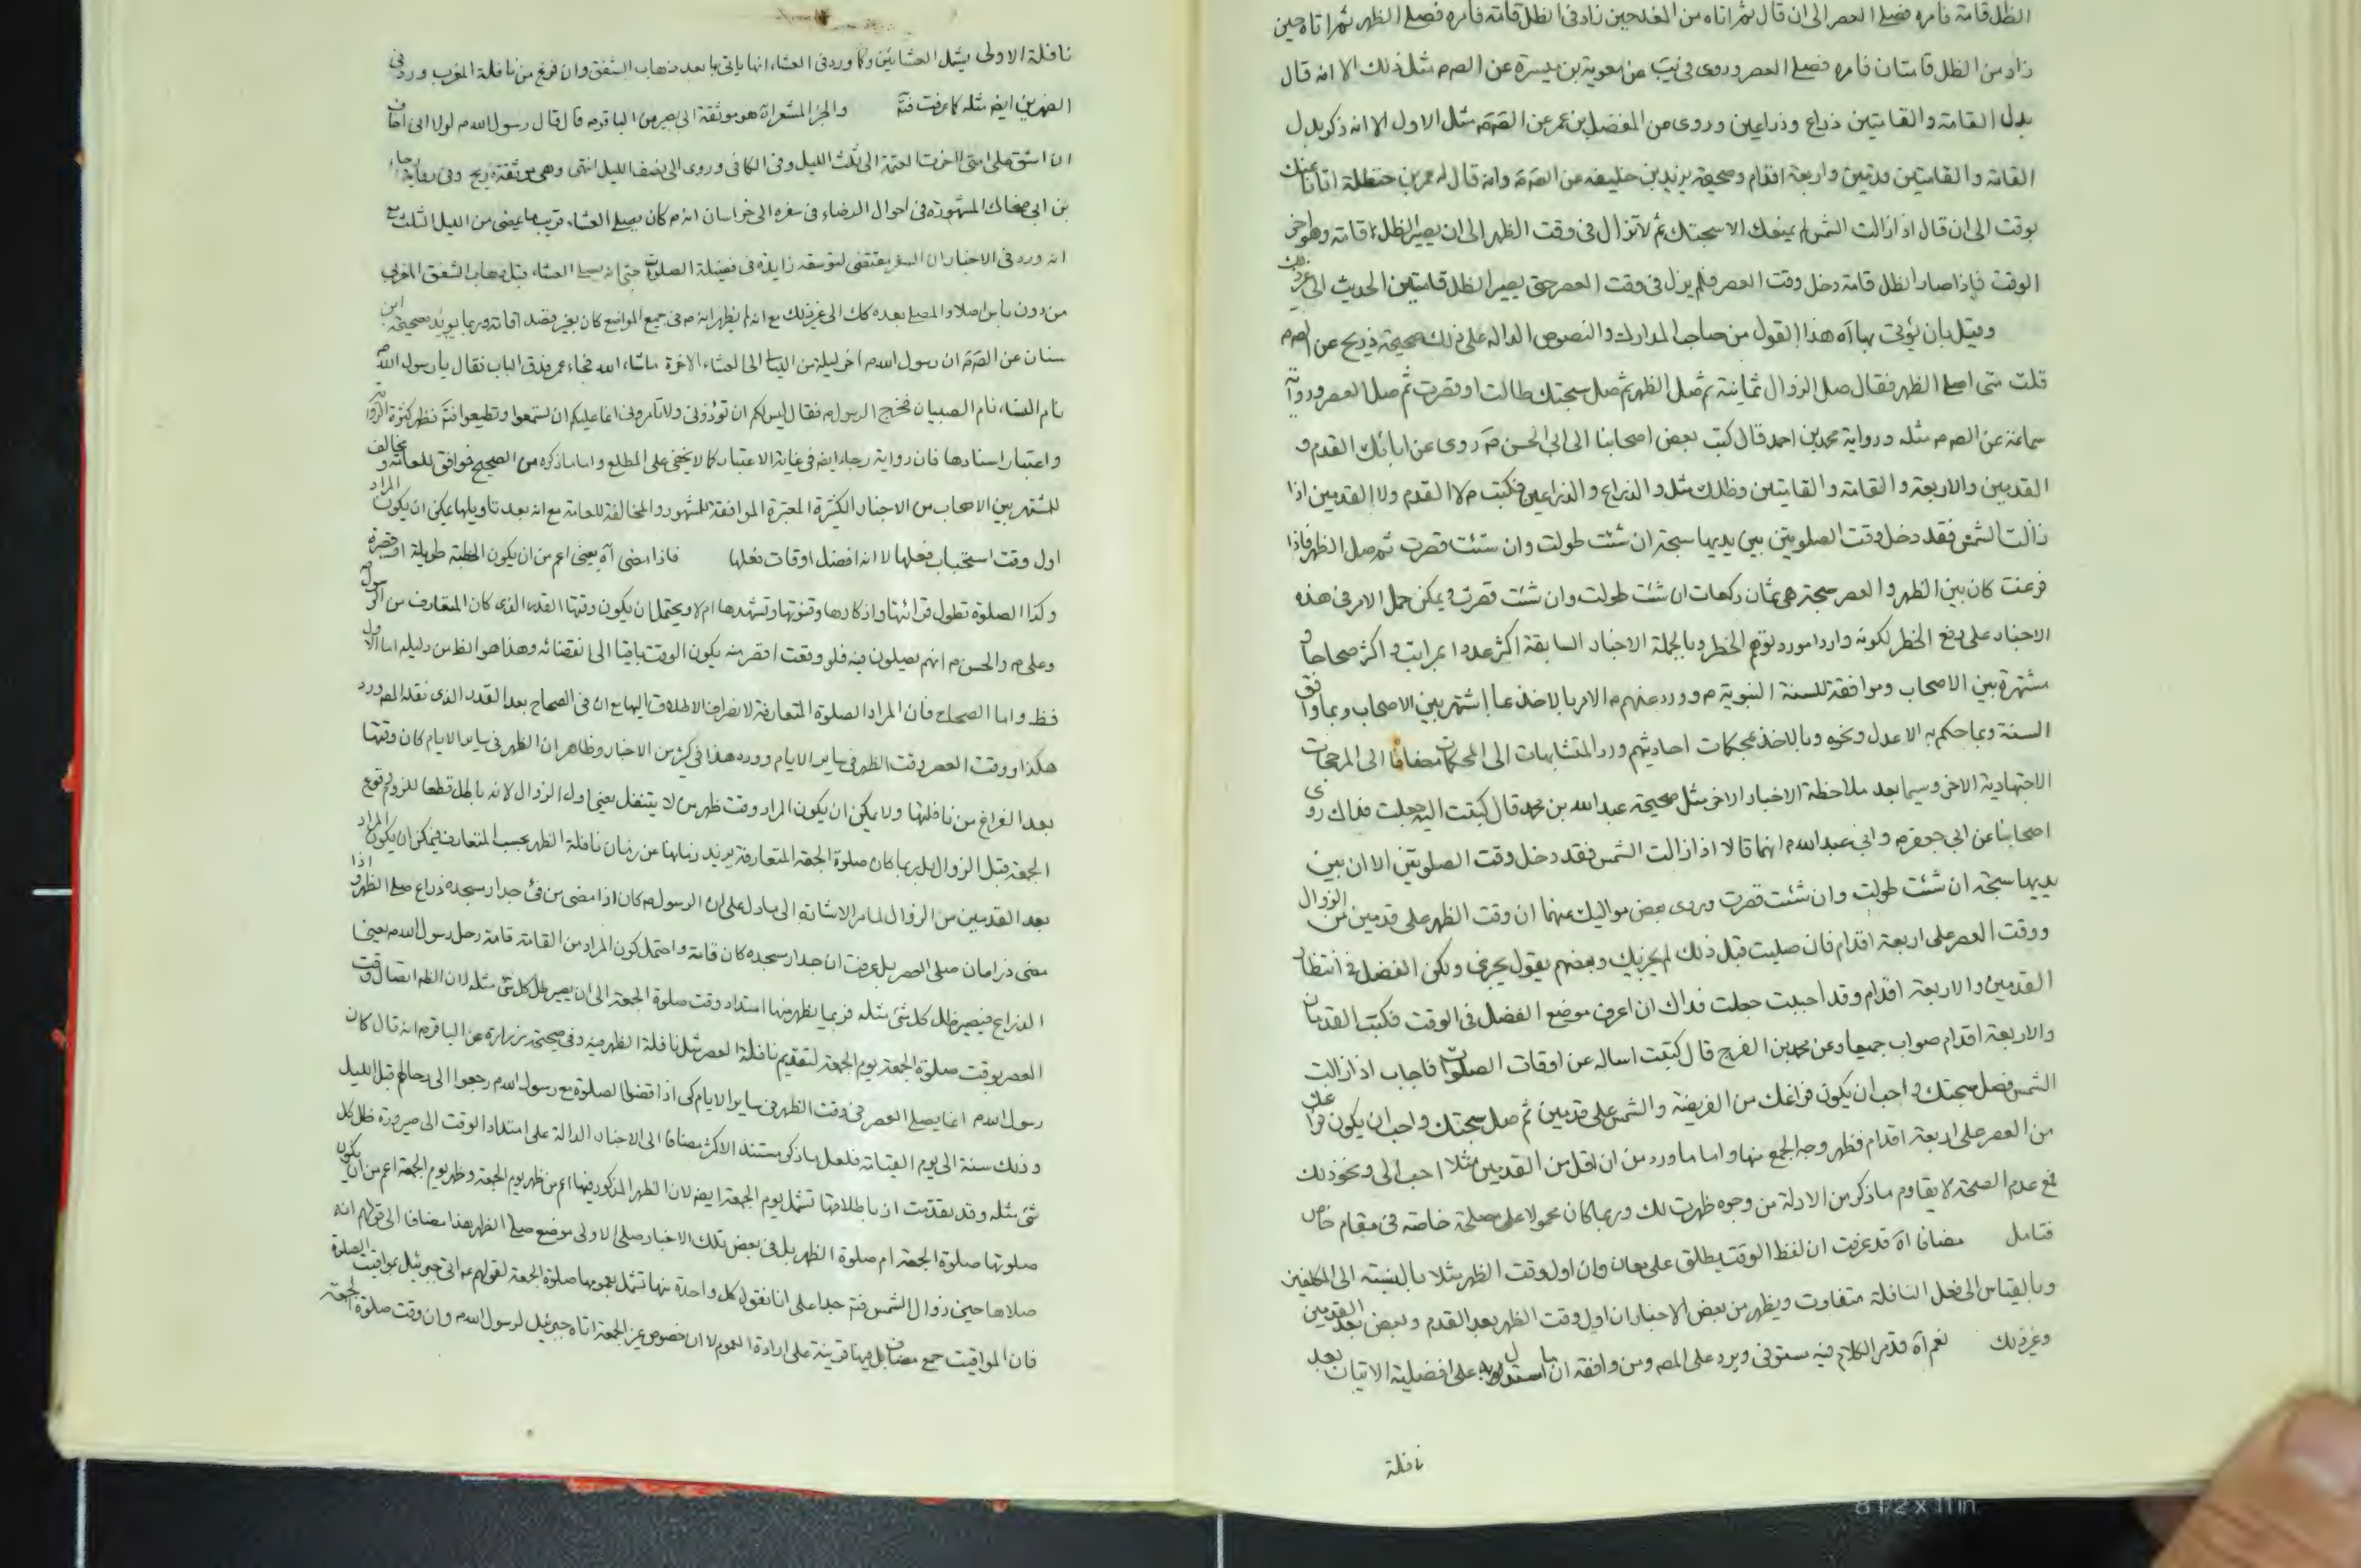 الظل قامة فامره فصلى العصر الى ان قال ثم اتاه من الغد حين زاد فى الظل قامة فامره فصلى الظهر ثم اتاه حين
زاد من الظل قامتان فامره فصلى العصر وروى فى يب عن معوية بن ميسرة عن الصم مثل ذلك الا انه قال
بدل القامة والقامتين ذراع وذراعين وروى عن المفضل بن عمر عن الصم مثل الاول الا انه ذكر بدل
القامة والقامتين قدمين واربعة اقدام وصحيحة يزيد بن خليفه عن الصم وانه قال له عمر بن حنظلة اتانا عنك
بوقت الى ان قال اذا زالت الشمس لم يمنعك الا سبحتك ثم لا تزال فى وقت الظهر الى ان يصير الظل قامة وهو اخر
الوقت فاذا صار الظل قامة دخل وقت العصر فلم يزل فى وقت العصر حتى يصير الظل قامتين الحديث الى غير ذلك
وقيل بان يؤتى بها اه هذا القول من صاحب المدارك والنصوص الدالة على ذلك صحيحة ذريح عن الصم
قلت متى اصلى الظهر فقال صل الزوال ثمانية ثم صل الظهر ثم صل سبحتك طالت او قصرت ثم صل العصر ورواية
سماعة عن الصم مثله ورواية محمد بن احمد قال كتب بعض اصحابنا الى ابى الحسن م روى عن ابائك القدم و
القدمين والاربعة والقامة والقامتين وظلك مثل والذراع والذراعين فكتب م لا القدم ولا القدمين اذا
زالت الشمس فقد دخل وقت الصلوتين بين يديها سبحة ان شئت طولت وان شئت قصرت ثم صل الظهر فاذا
فرغت كان بين الظهر والعصر سبحة هى ثمان ركعات ان شئت طولت وان شئت قصرت ويمكن حمل الامر فى هذه
الاخبار على رفع الحظر لكونه واردا مورد توهم الحظر وبالجملة الاخبار السابقة اكثر عددا بمراتب واكثر صحاحا و
مشتهرة بين الاصحاب وموافقة للسنة النبوية م وورد عنهم م الامر بالاخذ بما اشتهر بين الاصحاب وبما وافق
السنة وبما حكم به الاعدل ونحوه وبالاخذ بمحكمات احاديثهم ورد المتشابهات الى المحكمات مضافا الى المرجحات
الاجتهادية الاخر وسيما بعد ملاحظة الاخبار الاخر مثل صحيحة عبد الله بن محمد قال كتبت اليه جعلت فداك روى
اصحابنا عن ابى جعفر م وابى عبد الله م انهما قالا اذا زالت الشمس فقد دخل وقت الصلوتين الا ان بين
يديها سبحة ان شئت طولت وان شئت قصرت وروى بعض مواليك عنهما ان وقت الظهر على قدمين من الزوال
ووقت العصر على اربعة اقدام فان صليت قبل ذلك لم يجزيك وبعضهم يقول يجزى ولكن الفضل فى انتظار
القدمين والاربعة اقدام وقد احببت جعلت فداك ان اعرف موضع الفضل فى الوقت فكتب القدمان
والاربعة اقدام صواب جميعا وعن محمد بن الفرج قال كتبت اساله عن اوقات الصلوات فاجاب اذا زالت
الشمس فصل سبحتك واحب ان يكون فراغك من الفريضة والشمس على قدمين ثم صل سبحتك واحب ان يكون فراغك
من العصر على اربعة اقدام فظهر وجه الجمع منها واما ما ورد من ان اقل من القدمين مثلا احب الى ونحو ذلك
فمع عدم الصحة لا يقاوم ما ذكر من الادلة من وجوه ظهرت لك وربما كان محمولا على مصلحة خاصة فى مقام خاص
فتامل مضافا اه قد عرفت ان لفظ الوقت يطلق على معان وان اول وقت الظهر مثلا بالنسبة الى المكلفين
وبالقياس الى فعل النافلة متفاوت ويظهر من بعض الاخبار ان اول وقت الظهر بعد القدم وبعض بعد القدمين
وغير ذلك نعم اه قد مر الكلام فيه مستوفى ويرد على المصم ومن وافقه ان ما استدل به على افضلية الاتيان بعد
نافلة
نافلة الاولى يشمل العشائين وكما ورد فى العشاء انها ياتى بها بعد ذهاب الشفق وان فرغ من نافلة المغرب ورد فى
الظهرين ايضا مثله كما عرفت فتم والخبر المشعر اه هو موثقة ابى بصير من الباقر م قال قال رسول الله م لولا انى اخاف
ان اشق على امتى لاخرت العتمة الى ثلث الليل وفى الكافى وروى الى نصف الليل انتهى وهى موثقة ذريح وفى رواية رجاء
بن ابى ضحاك المشهورة فى احوال الرضاء فى سفره الى خراسان انه م كان يصلى العشاء قريب ما يمضى من الليل الثلث مع
انه ورد فى الاخبار ان السفر يقتضى لتوسعة زايدة فى فضيلة الصلوة حتى انه يصلى العشاء قبل ذهاب الشفق المغربى
من دون باس اصلا والمصلى بعده كك الى غير ذلك مع انه لم يظهر انه م فى جميع المواضع كان بغير قصد اقامة وربما يؤيد صحيحة ابن
سنان عن الصم ان رسول الله م اخر ليلة من الليالى العشاء الاخرة ما شاء الله فجاء عمر فدق الباب فقال يا رسول الله
نام النساء نام الصبيان فخرج الرسول م فقال ليس لكم ان تؤذونى ولا تامرونى انما عليكم ان تستمعوا وتطيعوا فتم فظهر كثرة الرواية
واعتبار اسنادها فان رواية رجاء ايضا فى غاية الاعتبار كما لا يخفى على المطلع واما ما ذكره من الصحيح فوافق للعامة و مخالف
للمشتهر بين الاصحاب من الاخبار الكثيرة المعتبرة الموافقة للمشهور والمخالفة للعامة مع انه بعد تاويلها يمكن ان يكون المراد
اول وقت استحباب فعلها لا انه افضل اوقات فعلها فاذا مضى اه يعنى اعم من ان يكون الخطبة طويلة او قصيرة
وكذا الصلوة تطول قرائتها واذكارها وقنوتها وتشهدها ام لا ويحتمل ان يكون وقتها القدر الذى كان المتعارف من الرسول
وعلى م والحسن م انهم يصلون فيه فلو وقعت اقصر منه يكون الوقت باقيا الى انقضائه وهذا هو الظ من دليله اما الاول
فظ واما الصحاح فان المراد الصلوة المتعارفة لانصراف الاطلاق اليها مع ان فى الصحاح بعد القدر الذى نقله المصم ورد
هكذا ووقت العصر وقت الظهر فى ساير الايام وورد هذا فى كثير من الاخبار وظاهر ان الظهر فى ساير الايام كان وقتها
بعد الفراغ من نافلتها ولا يمكن ان يكون المراد وقت ظهر من لا يتنفل يعنى اول الزوال لانه باطل قطعا للزوم وقوع
الجمعة قبل الزوال بل ربما كان صلوة الجمعة المتعارفة يزيد زمانها عن زمان نافلة الظهر بحسب المتعارف فيمكن ان يكون المراد
بعد القدمين من الزوال لما مر الاشارة الى ما دل على ان الرسول م كان اذا مضى من فئ جدار مسجده ذراع صلى الظهر واذا
مضى ذراعان صلى العصر بل عرفت ان جدار مسجده كان قامة واحتمل كون المراد من القامة قامة رحل رسول الله م يعنى
الذراع فيصير ظل كل شئ مثله فربما يظهر منها امتداد وقت صلوة الجمعة الى ان يصير ظل كل شئ مثله لان الظ اتصال وقت
العصر بوقت صلوة الجمعة يوم الجمعة لتقديم نافلة العصر مثل نافلة الظهر فيه وفى صحيحة زرارة عن الباقر م انه قال كان
رسول الله م انما يصلى العصر فى وقت الظهر فى ساير الايام كى اذا قضوا الصلوة مع رسول الله م رجعوا الى رحالهم قبل الليل
وذلك سنة الى يوم القيامة فلعل ما ذكر مستند الاكثر مضافا الى الاخبار الدالة على امتداد الوقت الى صيرورة ظل كل
شئ مثله وقد تقدمت ان باطلاقها تشمل يوم الجمعة ايضا لان الظهر المذكور فيها اعم من ظهر يوم الجمعة وظهر يوم الجمعة اعم من ان يكون
صلوتها صلوة الجمعة ام صلوة الظهر بل فى بعض تلك الاخبار صلى الاولى موضع صلى الظهر هذا مضافا الى قولهم انه
صلاها حين زوال الشمس فتم جدا على انا نقول كل واحدة منها تشمل بعمومها صلوة الجمعة لقولهم م اتى جبرئيل بمواقيت الصلوة
فان المواقيت جمع مضاف بل فيها قرينة على ارادة العموم لا ان خصوص غير الجمعة اتاه جبرئيل لرسول الله م وان وقت صلوة الجمعة